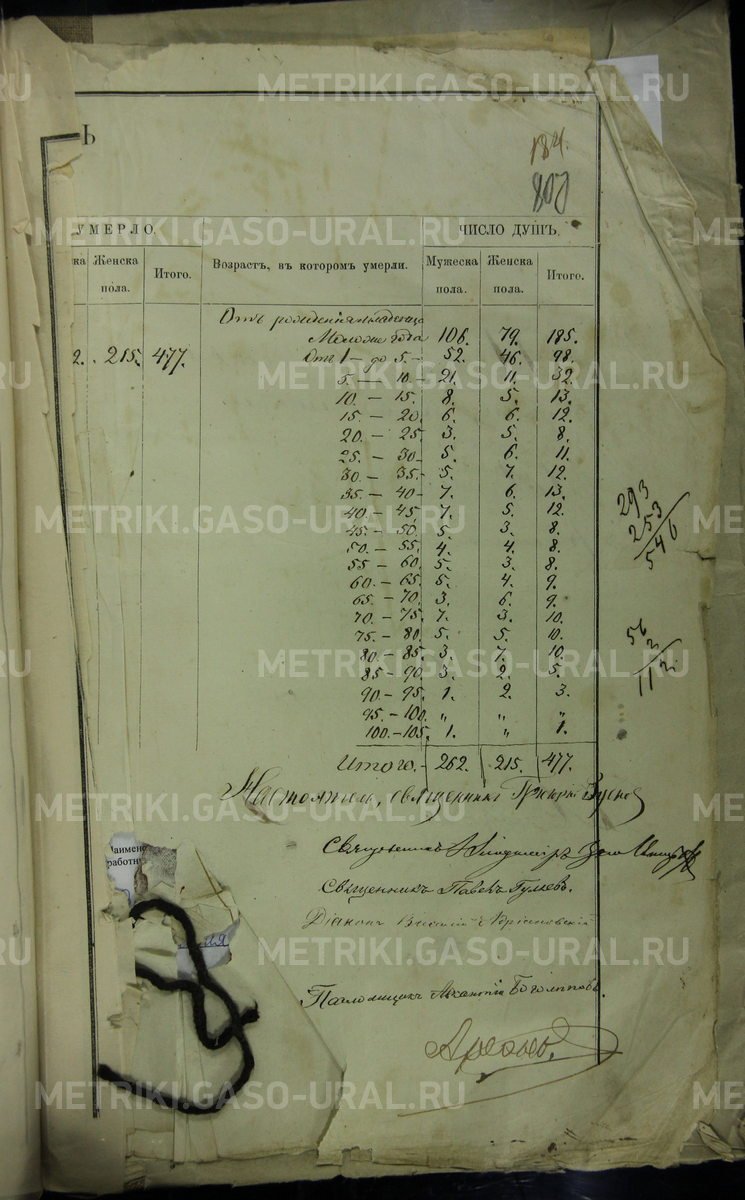 METRIKI.GASO-URAL.RU
Ъ
184.
807
УМЕРЛО.
ЧИСЛО ДУШЪ.
ка Женска пола. Итого. Возрастъ, въ которомъ умерли. Мужеска пола. Женска пола. Итого.
Отъ рожденія младенца
Моложе года 106. 79. 185.
2. 215. 477. Отъ 1 — до 5. — 52. 46. 98.
5. — 10. — 21. 11. 32.
10. — 15. 8. 5. 13.
15 — 20. 6. 6. 12.
20. — 25. 3. 5. 8.
25. — 30. 5. 6. 11.
30. — 35. 5. 7. 12.
35. — 40 — 7. 6. 13.
40. — 45. 7. 5. 12.
45. — 50. 5. 3. 8.
50. — 55. 4. 4. 8.
55 — 60. 5. 3. 8.
60. — 65. 5. 4. 9.
65 — 70. 3. 6. 9.
70. — 75. 7. 3. 10.
75. — 80. 5. 5. 10.
80. — 85. 3. 7. 10.
85 — 90. 3. 2. 5.
90 — 95. 1. 2. 3.
95. — 100. " " "
100. — 105. 1. " 1.
Итого. — 262. 215. 477.
293
253
546
56
2
112.
Настоятель, священникъ
Священникъ
Священникъ Павелъ Гуляевъ.
Діаконъ Василій
Псаломщикъ Боголюбовъ.
Наимено
работн